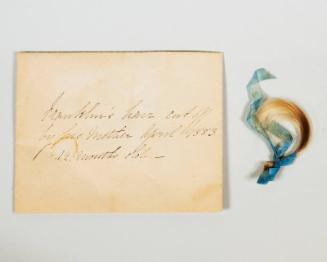 Franklin's hair cut off
by his mother April 1883
14 months old -